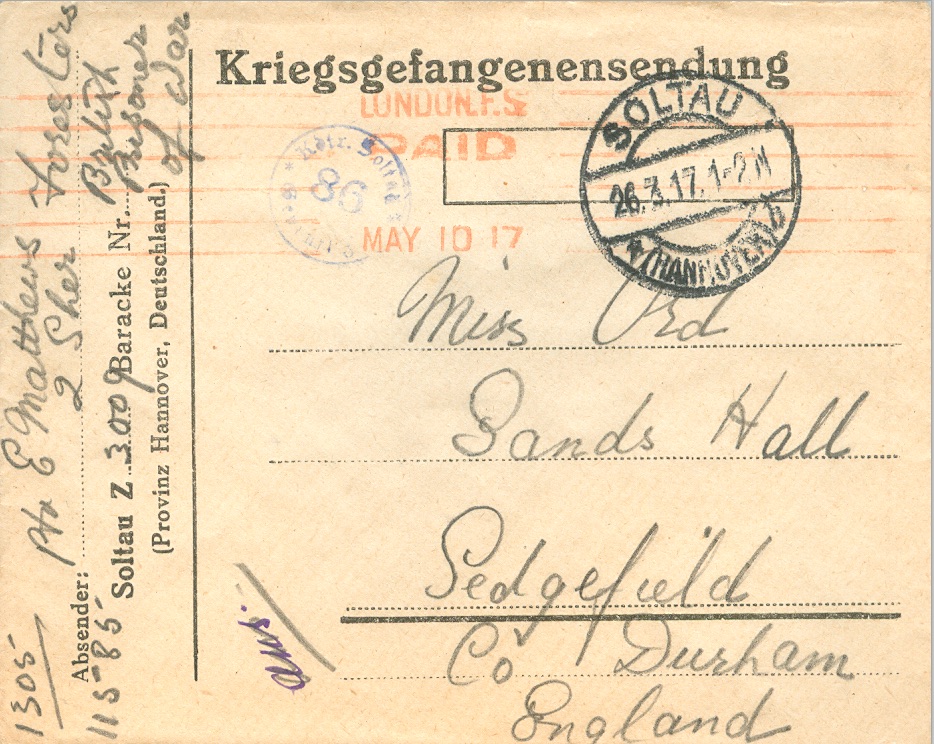 Kriegsgefangenensendung
LONDON.F.S
PAID
MAY 10 17
SOLTAU
26.3.17.1-2N
*(HANNOVER)b
Kdtr. Soltau
86
Miss Ord
Sands Hall
Sedgefield
Co Durham
England
Absender: Pte E Matthews
2 Sher Foresters
Soltau Z 3009 Baracke Nr.
British
Prisoner
of War
(Provinz Hannover, Deutschland.)
1305
11585